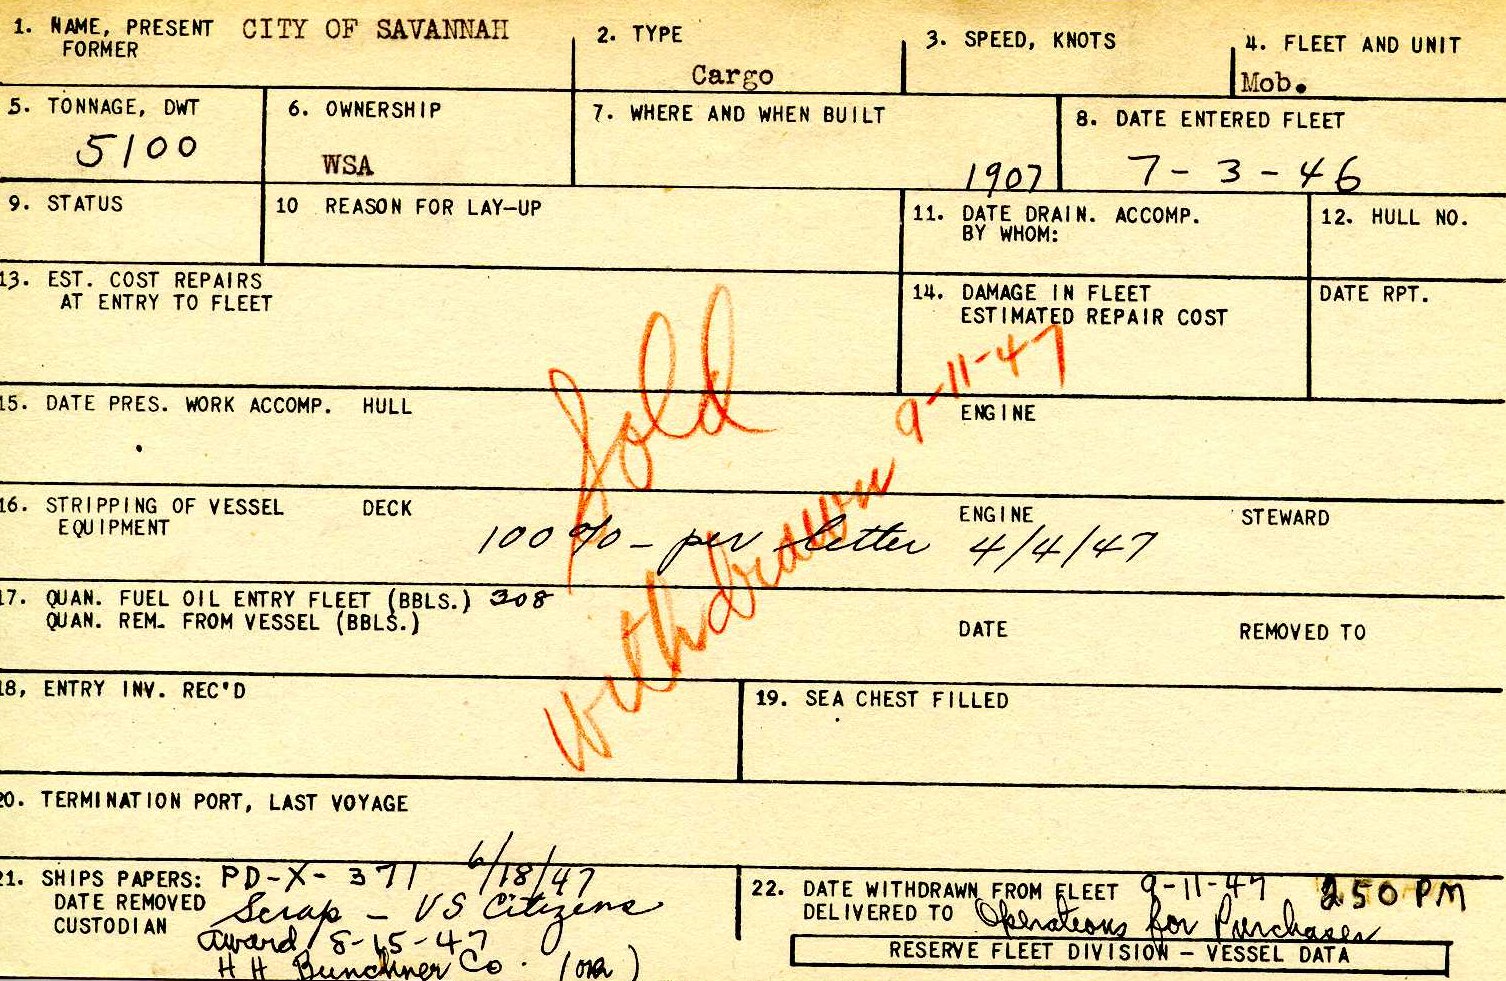 1. NAME, PRESENT CITY OF SAVANNAH
FORMER
2. TYPE
Cargo
3. SPEED, KNOTS
4. FLEET AND UNIT
Mob.
5. TONNAGE, DWT
5100
6. OWNERSHIP
WSA
7. WHERE AND WHEN BUILT
1907
8. DATE ENTERED FLEET
7-3-46
9. STATUS
10 REASON FOR LAY-UP
11. DATE DRAIN. ACCOMP.
BY WHOM:
12. HULL NO.
13. EST. COST REPAIRS
AT ENTRY TO FLEET
14. DAMAGE IN FLEET
ESTIMATED REPAIR COST
DATE RPT.
Sold
withdrawn 9-11-47
15. DATE PRES. WORK ACCOMP. HULL
ENGINE
16. STRIPPING OF VESSEL DECK ENGINE STEWARD
EQUIPMENT
100% - per letter 4/4/47
17. QUAN. FUEL OIL ENTRY FLEET (BBLS.) 308
QUAN. REM. FROM VESSEL (BBLS.) DATE REMOVED TO
18, ENTRY INV. REC'D
19. SEA CHEST FILLED
20. TERMINATION PORT, LAST VOYAGE
21. SHIPS PAPERS: PD-X-371 6/18/47
DATE REMOVED Scrap - US Citizens
CUSTODIAN
award 8-15-47
H H Co.
22. DATE WITHDRAWN FROM FLEET 9-11-47 250 PM
DELIVERED TO Operations for Purchaser
RESERVE FLEET DIVISION - VESSEL DATA